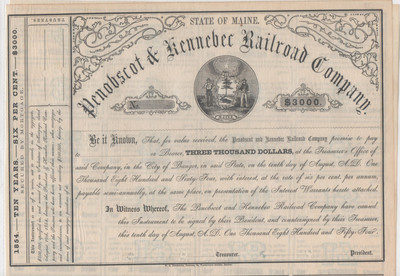 STATE OF MAINE.
Penobscot & Kennebec Railroad Company.
No.
$3000.
Be it Known, That, for value received, the Penobscot and Kennebec Railroad Company promise to pay
to or Bearer, THREE THOUSAND DOLLARS, at the Treasurer's Office of
said Company, in the City of Bangor, in said State, on the tenth day of August, A.D. One
Thousand Eight Hundred and Sixty-Four, with interest, at the rate of six per cent. per annum,
payable semi-annually, at the same place, on presentation of the Interest Warrants hereto attached.
In Witness Whereof, The Penobscot and Kennebec Railroad Company have caused
this Instrument to be signed by their President, and countersigned by their Treasurer,
this tenth day of August, A.D. One Thousand Eight Hundred and Fifty-Four.
Treasurer. President.
1854.—TEN YEARS.—SIX PER CENT.—$3000.
SECURED BY MORTGAGE.